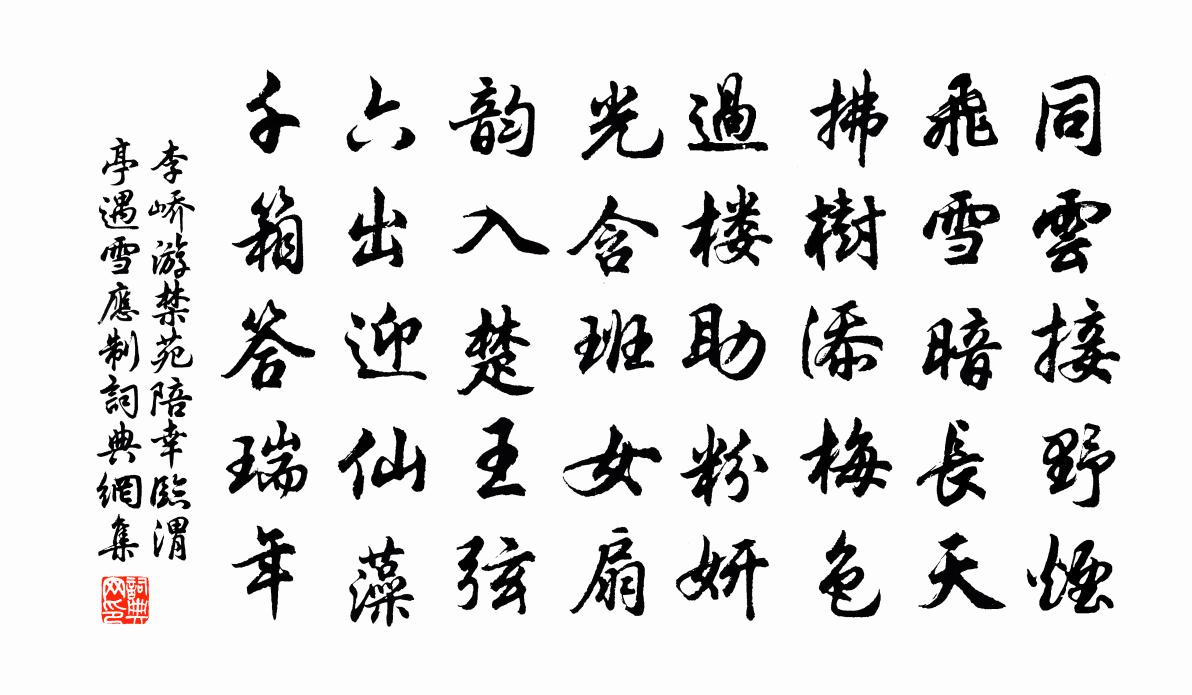 同雲接野煙
飛雪暗長天
拂樹添梅色
過楼助粉妍
光含班女扇
韵入楚王弦
六出迎仙藻
千箱答瑞年
李嶠游禁苑陪幸臨渭
亭遇雪應制詞典網集
詞典
网印